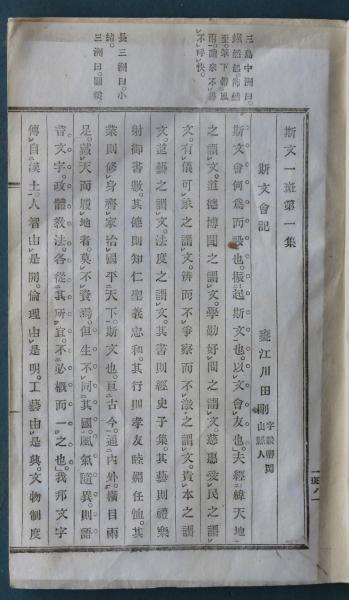 三島中洲曰。
至。筆下帶風
雨。讀來不得
不呼快。
長三洲曰。小
緒。
三洲曰。
斯文一斑第一集
斯文會記
甕江川田剛
斯文會何爲而設也。振起斯文也。以文會友也。夫經緯天地
之謂文。道德博聞之謂文。學勤好問之謂文。慈惠愛民之謂
文。有儀可象之謂文。辨而不爭察而不激之謂文。貴本之謂
文。道藝之謂文。法度之謂文。其書則經史子集。其藝則禮樂
射御書數。其德則知仁聖義忠和。其行則孝友睦婣任恤。其
業則修身齊家治國平天下。斯文也。亘古今。通內外。橫目兩
足。戴天而履地者。莫不資焉。但生不同其國。風氣隨異。則語
言文字。政體敎法。各從其所宜。不必槪而一之也。我邦文字
傳自漢土。人智由是開。倫理由是明。工藝由是興。文物制度